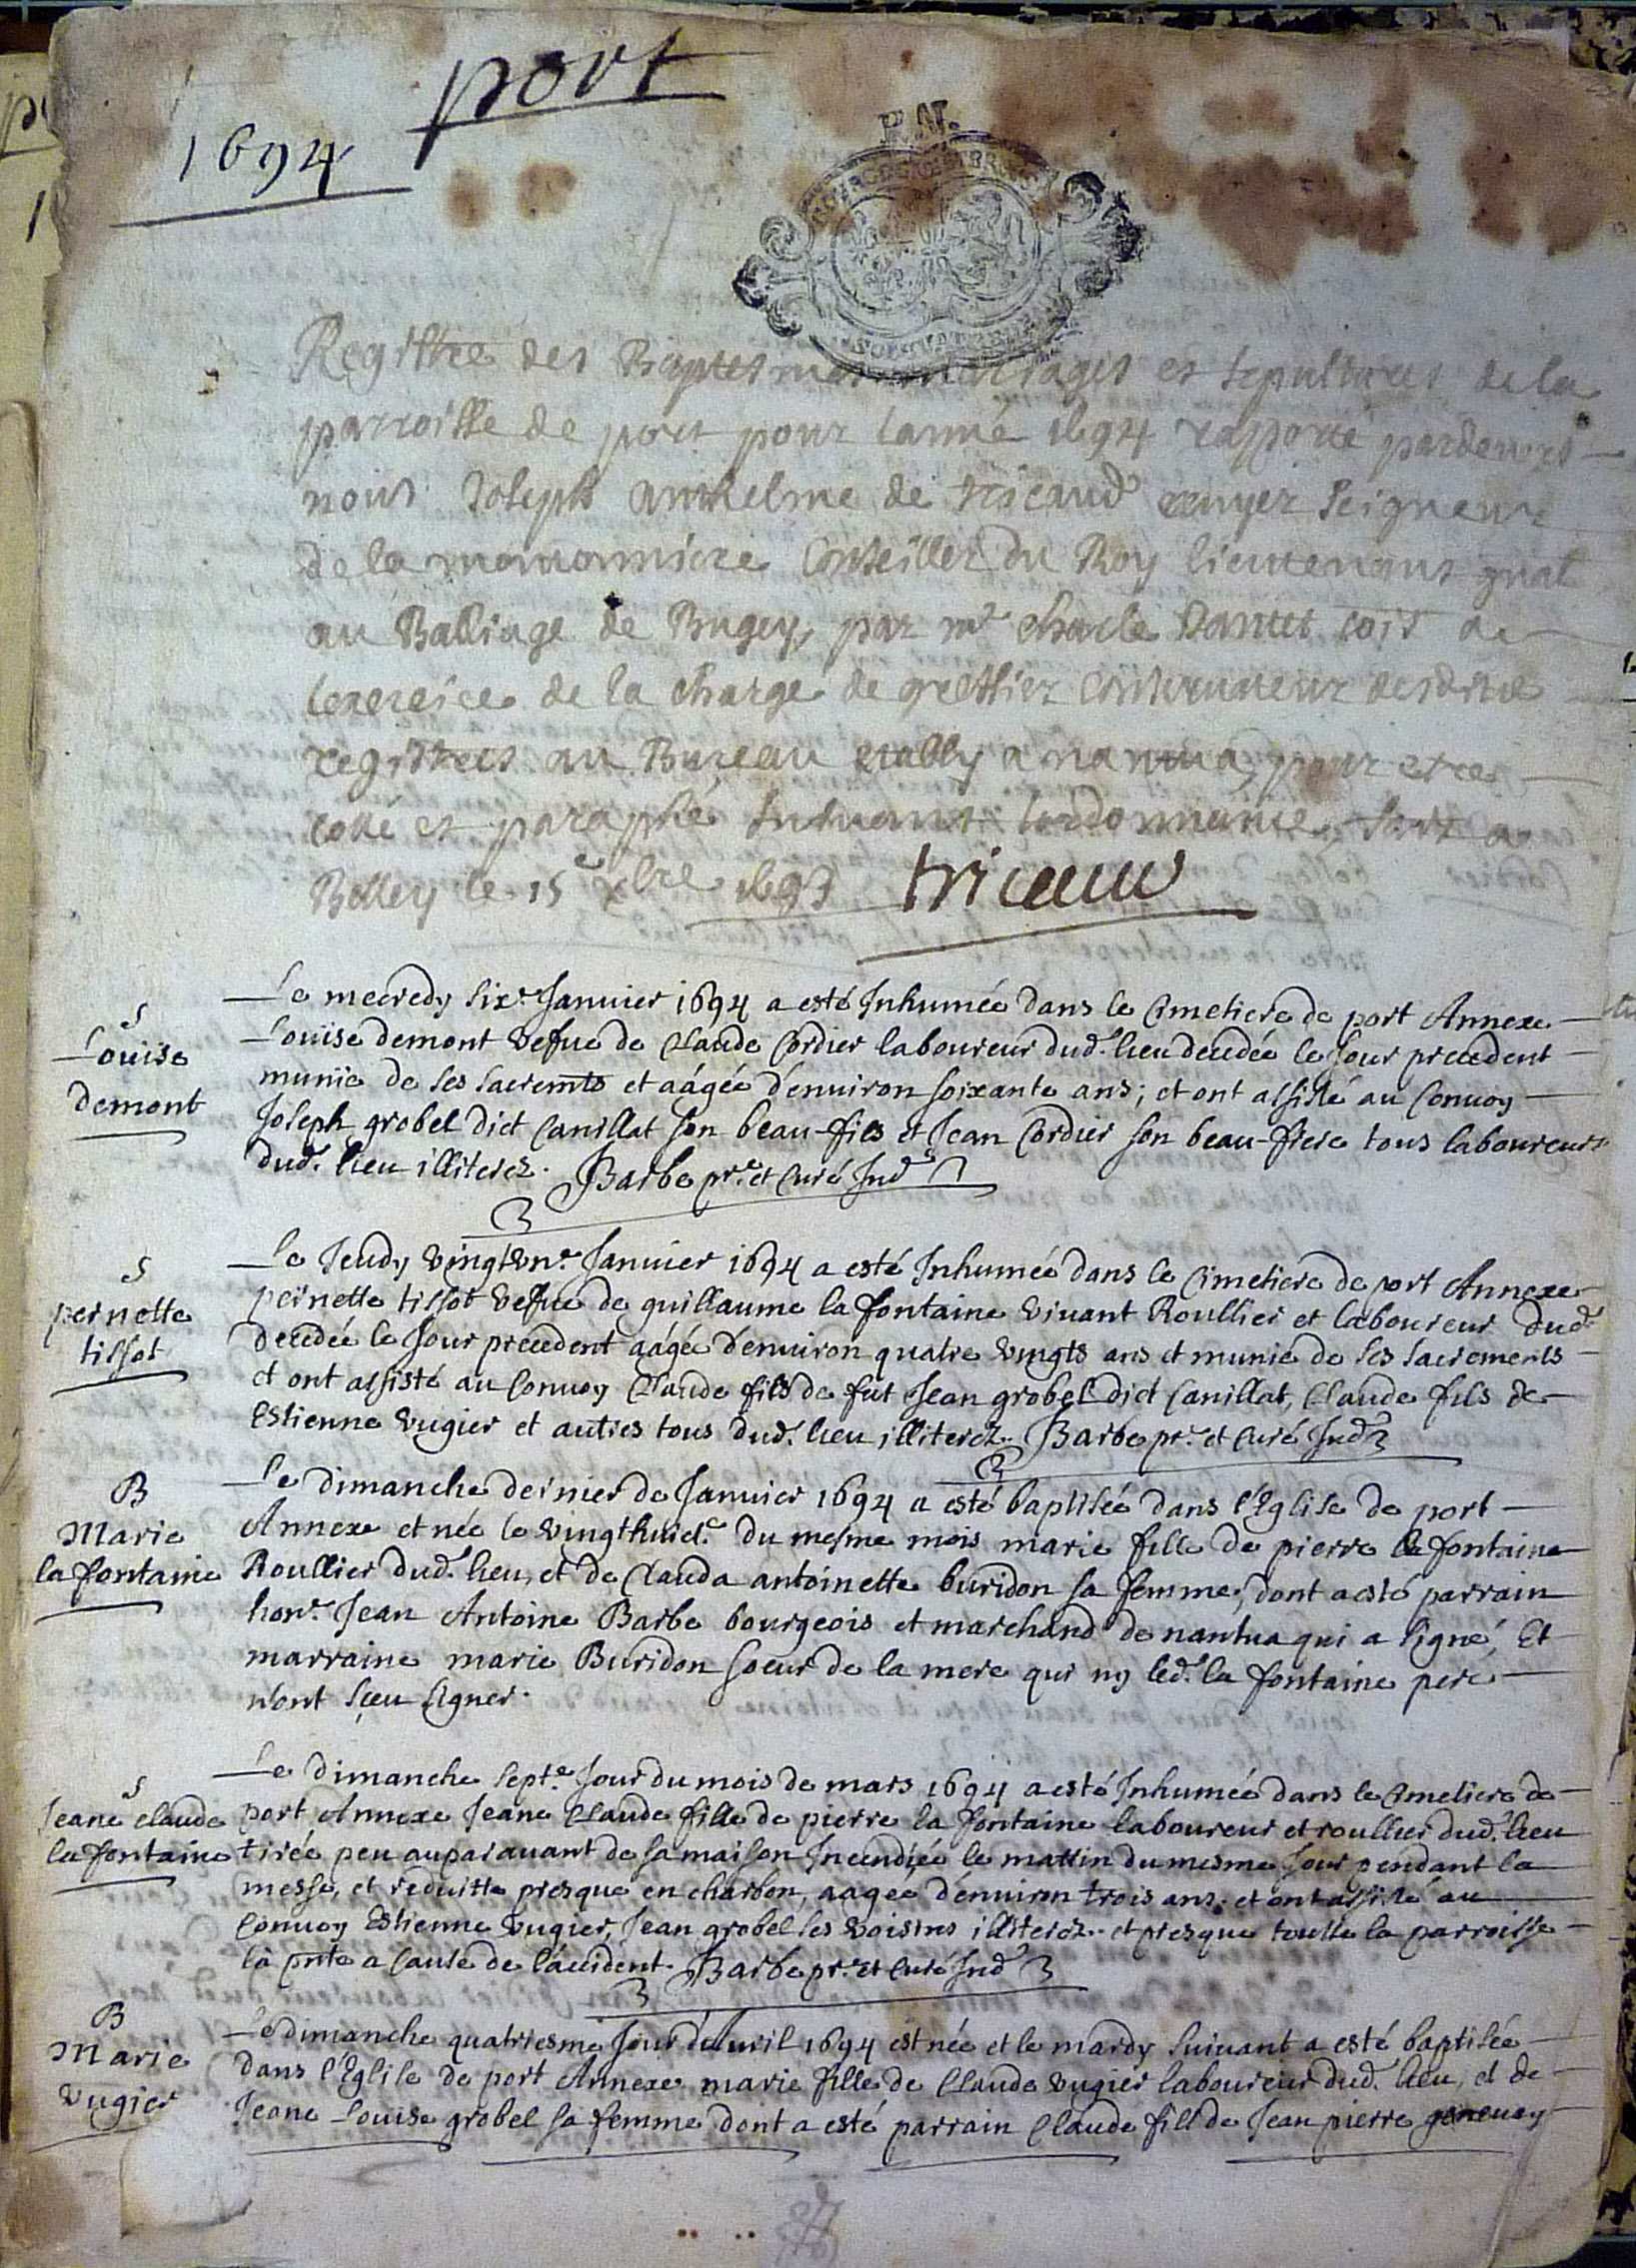 port
1694
Registre des Baptesmes mariages et sepultures de la
parroisse de port pour lannée 1694 rapporté pardevant
nous Joseph anthelme de tricaud escuyer seigneur
de la Conseiller du Roy lieutenant gnal
au Balliage de Bugey, par mr charle commis a
lexercice de la charge de greffier conservateur desdits
registres au Bureau estably a nantua, pour estre
cotté et paraphé suivant lordonnance, fait a
Belley le 15e xbre 1693 tricaud
S
Louise
demont
Le mecredy six.e Januier 1694 a esté Inhumée dans le Cimetiere de port Annexe
Louïse demont vefue de Claude Cordier laboureur dud. lieu decedée le Jour precedent
munie de ses sacremts et aágée d'enuiron soixante ans; et ont assisté au Conuoy
Joseph grobel dict Canillat son beau-fils et Jean Cordier son beau-frere tous laboureurs
dud. lieu illiterez. Barbe pr.e et Curé Ind
S
pernette
tissot
Le Jeudy vingtvn.e Januier 1694 a esté Inhumée dans le Cimetiere de port Annexe
pernette tissot vefue de guillaume la fontaine viuant Roullier et laboureur dud.
decedée le Jour precedent aágée d'enuiron quatre vingts ans et munie de ses sacrements
et ont assisté au Conuoy Claude fils de fut Jean grobel dict Canillat, Claude fils de
Estienne vugier et autres tous dud. lieu illiterez. Barbe pr.e et Curé Ind
B
Marie
la fontaine
Le dimanche dernier de Januier 1694 a esté baptisée dans l'Eglise de port
Annexe et née le vingthuict.e du mesme mois marie fille de pierre la fontaine
Roullier dud. lieu, et de Clauda antoinette buridon sa femme; dont a esté parrain
hon.e Jean Antoine Barbe bourgeois et marchand de nantua qui a signé, Et
marraine marie Buridon soeur de la mere qui ny led. la fontaine pere
n'ont sçeu signer.
S
Jeane claude
la fontaine
Le dimanche sept.e Jour du mois de mars 1694 a esté Inhumée dans le Cimetiere de
port Annexe Jeane Claude fille de pierre la fontaine laboureur et roullier dud. lieu
tirée peu auparauant de sa maison Incendiée le mattin du mesme Jour pendant la
messe, et reduitte presque en charbon, aagée d'enuiron trois ans; et ont assisté au
Conuoy Estienne vugier, Jean grobel ses voisins illiterez. et presque toutte la parroisse
là pnte a cause de l'accident. Barbe pr.e et Curé Ind
B
Marie
vugier
Le dimanche quatriesme Jour d'Auril 1694 est née et le mardy suiuant a esté baptisée
dans l'Eglise de port Annexe marie fille de Claude vugier laboureur dud. lieu, et de
Jeane Louise grobel sa femme dont a esté parrain Claude fill de Jean pierre geneuoy